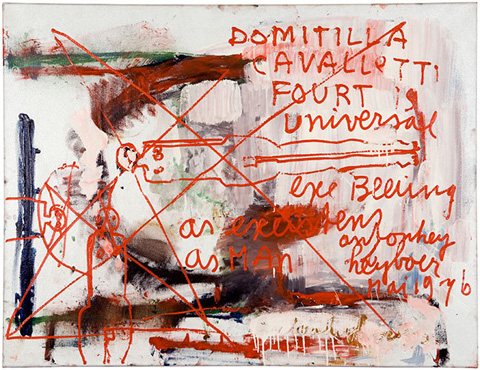 DOMITILLA
CAVALLOTTI
FOURT
universal
exe Beeing
as existens
as MAN
antonhey
heyboer
mai 1976